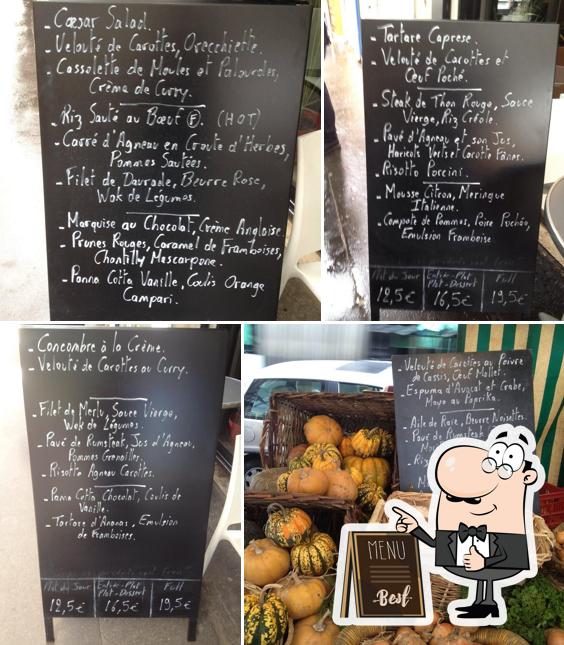 - Cæsar Salad.
- Velouté de Carottes, Orecchiette.
- Cassolette de Moules et Palourdes,
Crème de Curry.
- Riz Sauté au Bœuf F. (HOT)
- Carré d'Agneau en Croute d'Herbes,
Pommes Sautées.
- Filet de Daurade, Beurre Rose,
Wok de Légumes.
- Marquise au Chocolat, Crème Anglaise.
- Prunes Rouges, Caramel de Framboises,
Chantilly Mascarpone.
- Panna Cotta Vanille, Coulis Orange
Campari.
- Tartare Caprese.
- Velouté de Carottes et
Œuf Poché.
- Steak de Thon Rouge, Sauce
Vierge, Riz Créole.
- Pavé d'Agneau et son Jus,
Haricots Verts et Carotte Fânes.
- Risotto Porcini.
- Mousse Citron, Meringue
Italienne.
- Compote de Pommes, Poire Pochée,
Emulsion Framboise
Plat du Jour Entrée-Plat Full
Plat-Dessert
12,5€ 16,5€ 19,5€
- Concombre à la Crème.
- Velouté de Carottes au Curry.
- Filet de Merlu, Sauce Vierge,
Wok de Légumes.
- Pavé de Rumsteak, Jus d'Agneau,
Pommes Grenailles.
- Risotto Agneau Carottes.
- Panna Cotta Chocolat, Coulis de
Vanille.
- Tartare d'Ananas, Emulsion
de Framboises.
Plat du Jour Entrée-Plat Full
Plat-Dessert
12,5€ 16,5€ 19,5€
- Velouté de Carottes au Poivre
de Cassis, Œuf Mollet.
- Espuma d'Avocat et Crabe,
Mayo au Paprika.
- Aile de Raie, Beurre Noisettes.
- Pavé de Rumsteak
MENU
Best